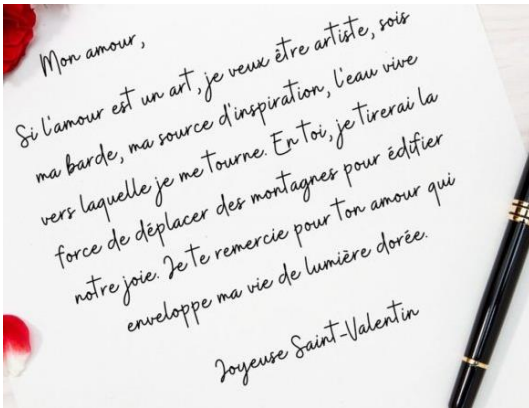 Mon amour,
Si l'amour est un art, je veux être artiste, sois
ma barde, ma source d'inspiration, l'eau vive
vers laquelle je me tourne. En toi, je tirerai la
force de déplacer des montagnes pour édifier
notre joie. Je te remercie pour ton amour qui
enveloppe ma vie de lumière dorée.
Joyeuse Saint-Valentin